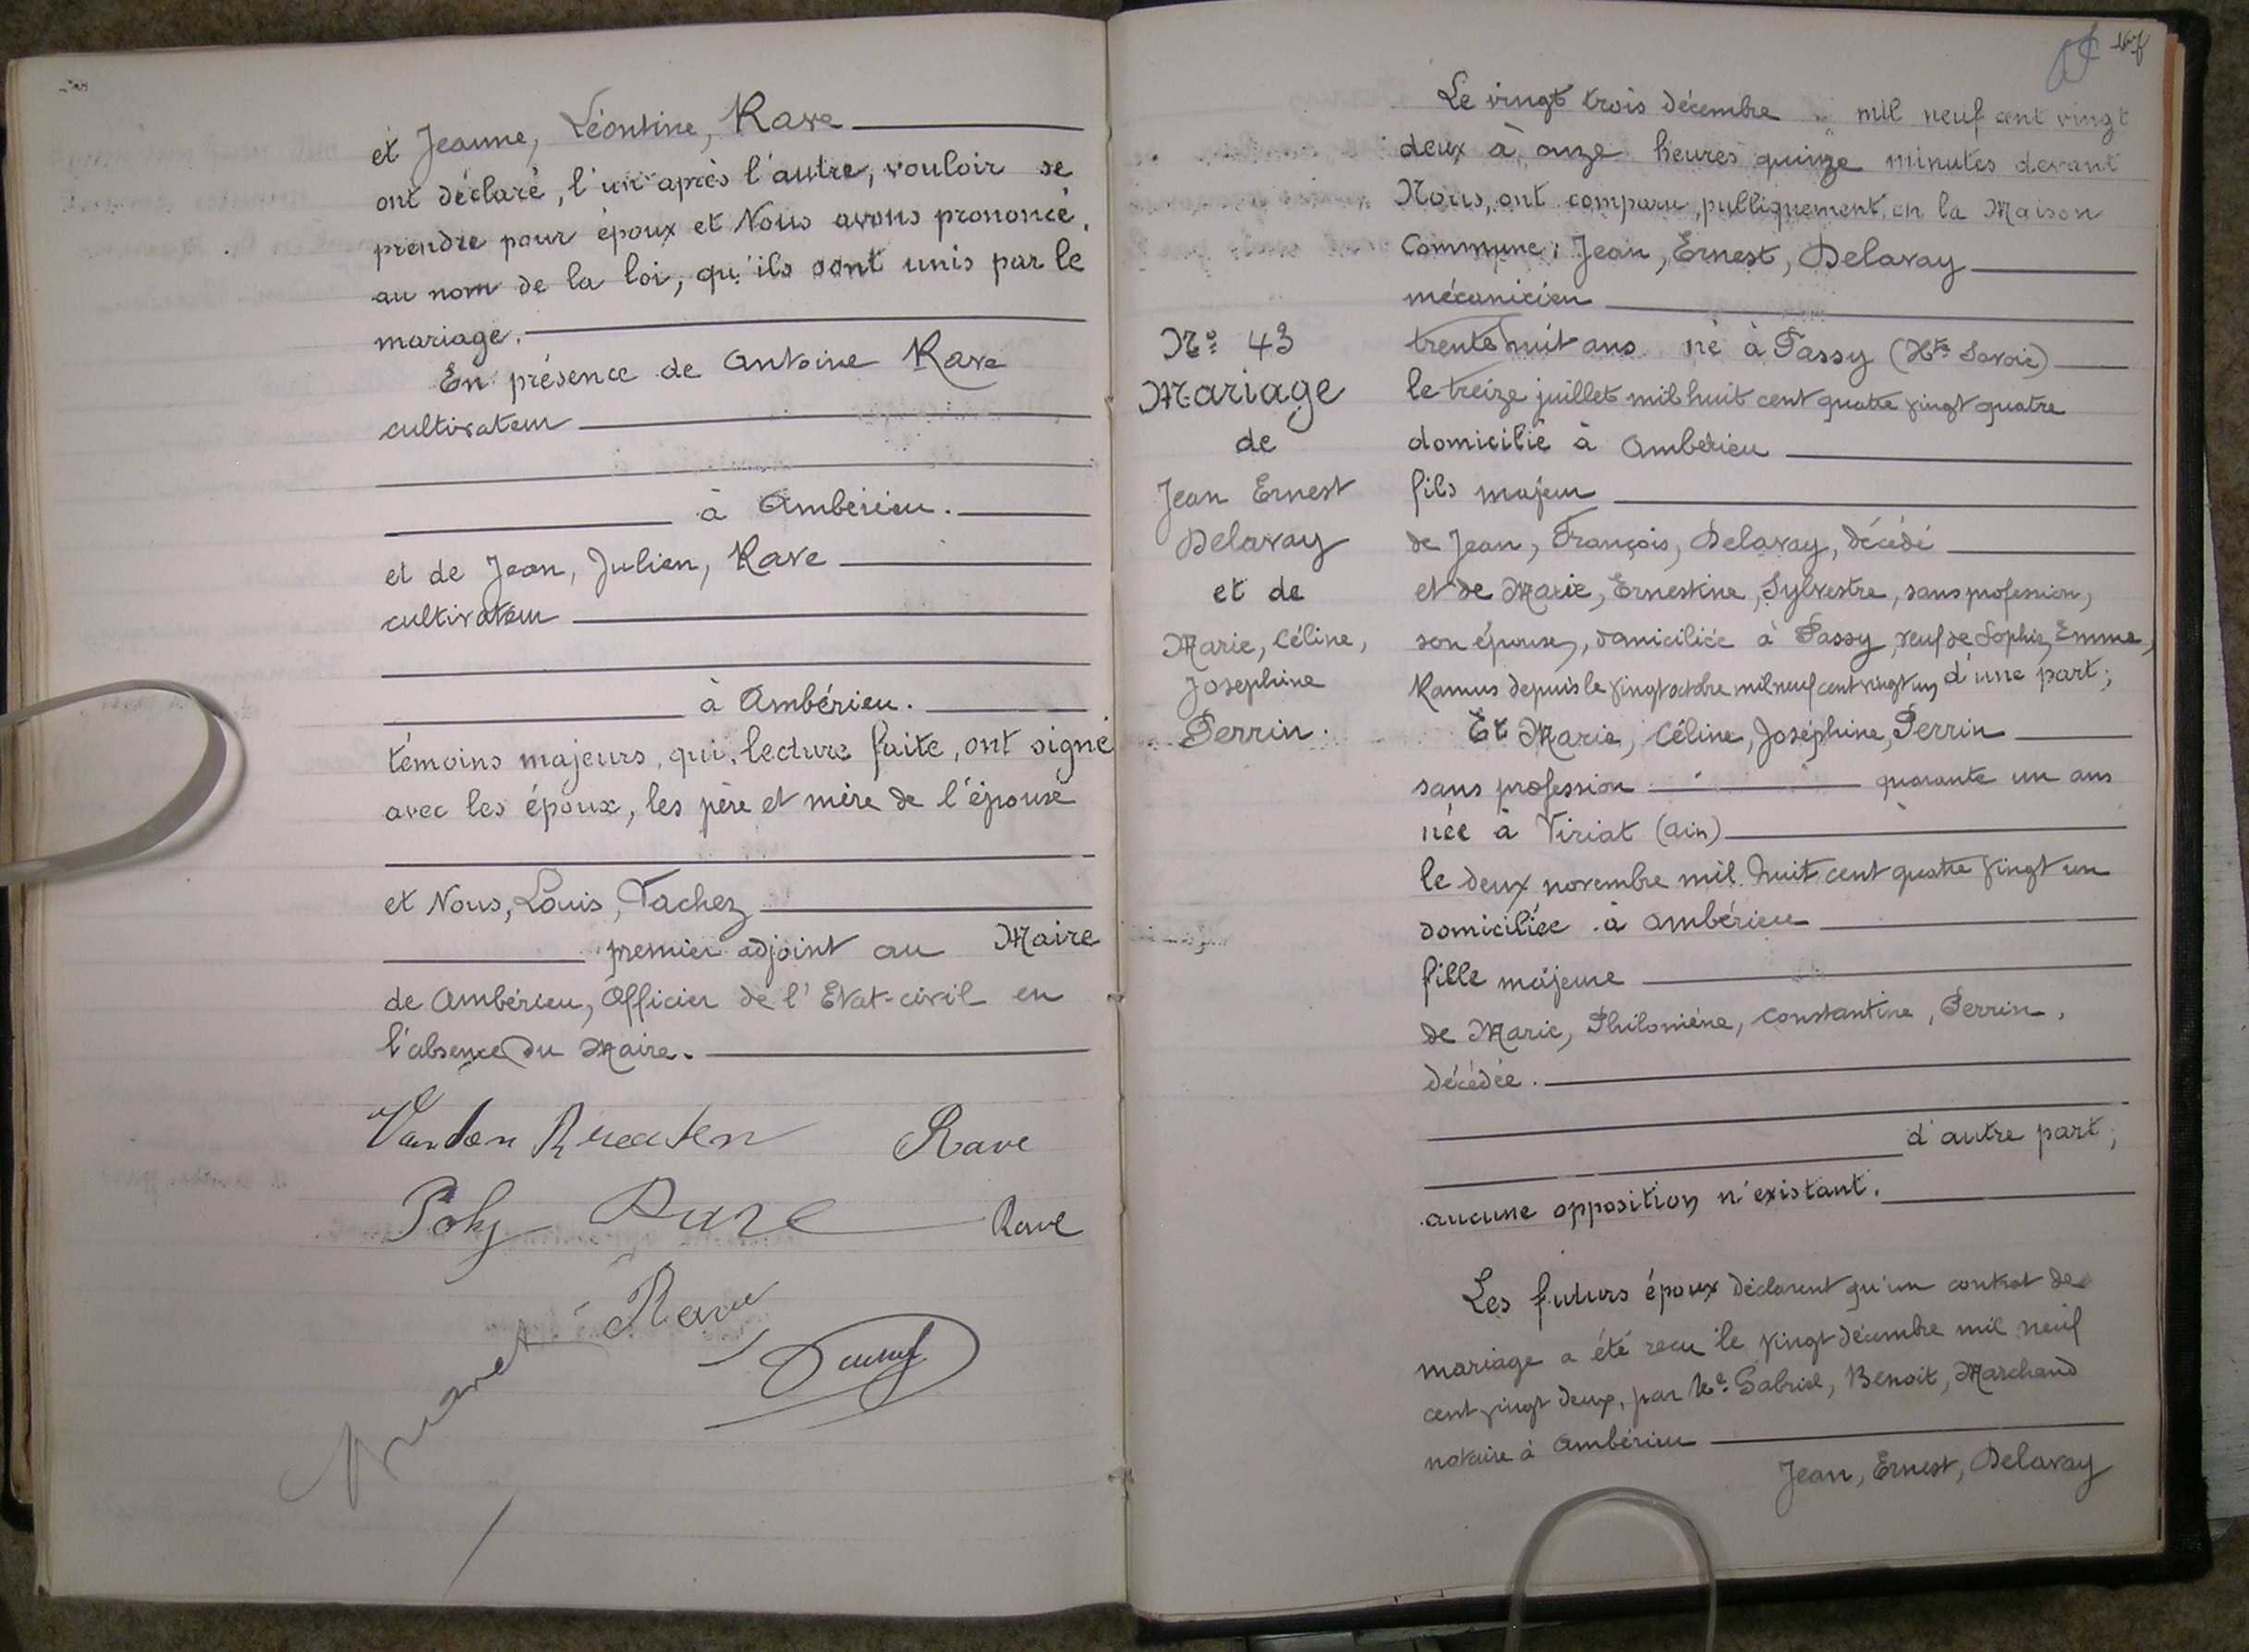 et Jeanne, Léontine, Rave
ont déclaré, l'un après l'autre, vouloir se
prendre pour époux et Nous avons prononcé,
au nom de la loi, qu'ils sont unis par le
mariage.
En présence de Antoine Rave
cultivateur
à Ambérieu.
et de Jean, Julien, Rave
cultivateur
à Ambérieu.
témoins majeurs, qui, lecture faite, ont signé
avec les époux, les père et mère de l'épouse
et Nous, Louis, Tachez
premier adjoint au Maire
de Ambérieu, Officier de l'Etat-civil en
l'absence du Maire.
Rave
Poly Rave Rave
Rave
Le vingt trois décembre mil neuf cent vingt
deux à onze heures quinze minutes devant
Nous, ont comparu, publiquement, en la Maison
Commune: Jean, Ernest, Delavay
mécanicien
trente huit ans né à Passy (Hte Savoie)
le treize juillet mil huit cent quatre vingt quatre
domicilié à Ambérieu
fils majeur
de Jean, François, Delavay, décédé
et de Marie, Ernestine, Sylvestre, sans profession,
son épouse, domiciliée à Passy, veuf de Sophie, Emma,
Ramus depuis le vingt octobre mil neuf cent vingt un, d'une part;
Et Marie, Céline, Joséphine, Perrin
sans profession quarante un ans
née à Viriat (Ain)
le deux novembre mil huit cent quatre vingt un
domiciliée à Ambérieu
fille majeure
de Marie, Philomène, Constantine, Perrin,
décédée.
d'autre part;
aucune opposition n'existant.
Les futurs époux déclarent qu'un contrat de
mariage a été reçu le vingt décembre mil neuf
cent vingt deux, par Me Gabriel, Benoit, Marchand
notaire à Ambérieu
Jean, Ernest, Delavay
No 43
Mariage
de
Jean Ernest
Delavay
et de
Marie, Céline,
Joséphine
Perrin.